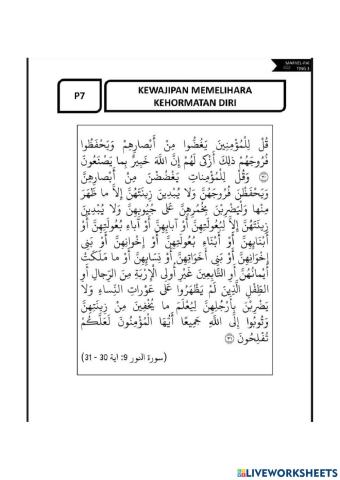 MARVEL-PAI
TING 3
P7
KEWAJIPAN MEMELIHARA
KEHORMATAN DIRI
قُلْ لِلْمُؤْمِنِينَ يَغُضُّوا مِنْ أَبْصَارِهِمْ وَيَحْفَظُوا
فُرُوجَهُمْ ذَلِكَ أَزْكَى لَهُمْ إِنَّ اللَّهَ خَبِيرٌ بِمَا يَصْنَعُونَ
﴿٣٠﴾ وَقُلْ لِلْمُؤْمِنَاتِ يَغْضُضْنَ مِنْ أَبْصَارِهِنَّ
وَيَحْفَظْنَ فُرُوجَهُنَّ وَلَا يُبْدِينَ زِينَتَهُنَّ إِلَّا مَا ظَهَرَ
مِنْهَا وَلْيَضْرِبْنَ بِخُمُرِهِنَّ عَلَى جُيُوبِهِنَّ وَلَا يُبْدِينَ
زِينَتَهُنَّ إِلَّا لِبُعُولَتِهِنَّ أَوْ آبَائِهِنَّ أَوْ آبَاءِ بُعُولَتِهِنَّ أَوْ
أَبْنَائِهِنَّ أَوْ أَبْنَاءِ بُعُولَتِهِنَّ أَوْ إِخْوَانِهِنَّ أَوْ بَنِي
إِخْوَانِهِنَّ أَوْ بَنِي أَخَوَاتِهِنَّ أَوْ نِسَائِهِنَّ أَوْ مَا مَلَكَتْ
أَيْمَانُهُنَّ أَوِ التَّابِعِينَ غَيْرِ أُولِي الْإِرْبَةِ مِنَ الرِّجَالِ أَوِ
الطِّفْلِ الَّذِينَ لَمْ يَظْهَرُوا عَلَى عَوْرَاتِ النِّسَاءِ وَلَا
يَضْرِبْنَ بِأَرْجُلِهِنَّ لِيُعْلَمَ مَا يُخْفِينَ مِنْ زِينَتِهِنَّ
وَتُوبُوا إِلَى اللَّهِ جَمِيعًا أَيُّهَا الْمُؤْمِنُونَ لَعَلَّكُمْ
تُفْلِحُونَ ﴿٣١﴾
(سورة النور 9: اية 30 - 31)
LIVEWORKSHEETS